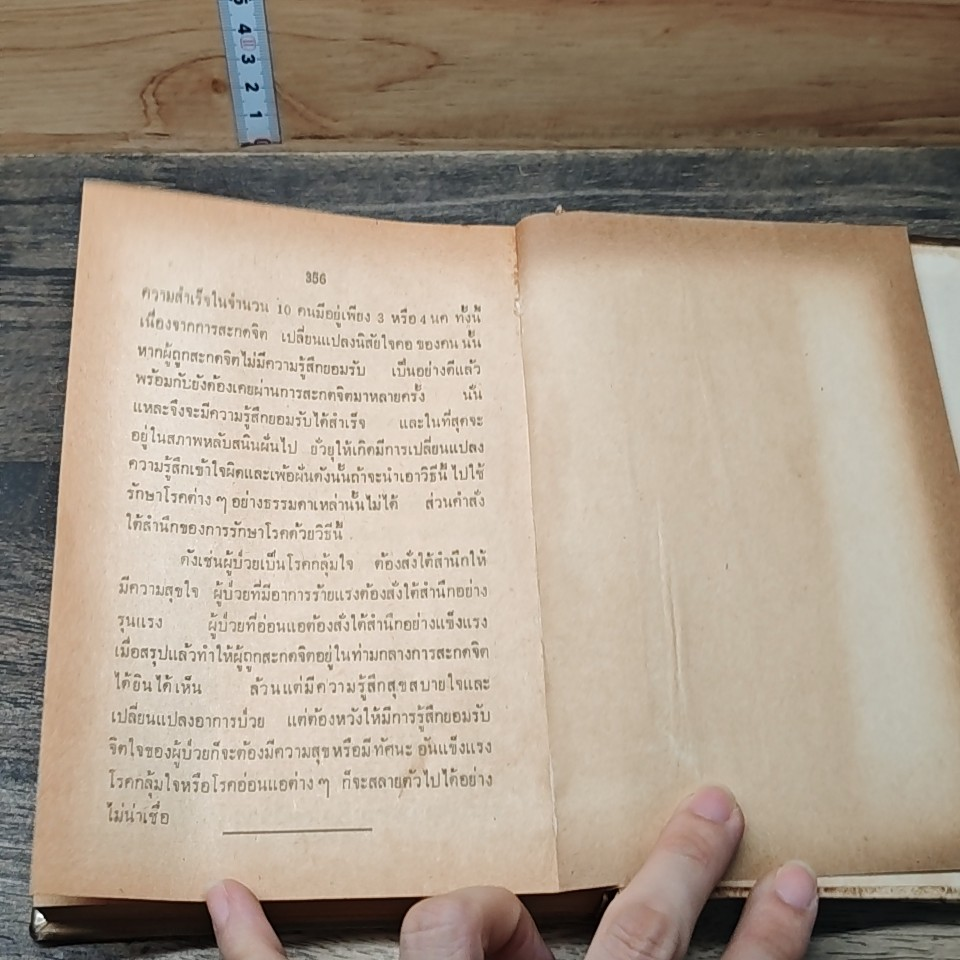 5
4
3
2
1
356
ความสำเร็จในจำนวน 10 คนมีอยู่เพียง 3 หรือ 4 นค ทั้งนี้
เนื่องจากการสะกดจิต เปลี่ยนแปลงนิสัยใจคอ ของคน นั้น
หากผู้ถูกสะกดจิตไม่มีความรู้สึกยอมรับ เป็นอย่างดีแล้ว
พร้อมกับยังต้องเคยผ่านการสะกดจิตมาหลายครั้ง นั่น
แหละจึงจะมีความรู้สึกยอมรับได้สำเร็จ และในที่สุดจะ
อยู่ในสภาพหลับสนินฝันไป ยั่วยุให้เกิดมีการเปลี่ยนแปลง
ความรู้สึกเข้าใจผิดและเพ้อฝันดังนั้นถ้าจะนำเอาวิธีนี้ ไปใช้
รักษาโรคต่าง ๆ อย่างธรรมดาเหล่านั้นไม่ได้ ส่วนคำสั่ง
ใต้สำนึกของการรักษาโรคด้วยวิธีนี้
ดังเช่นผู้ป่วยเป็นโรคกลุ้มใจ ต้องสั่งใต้สำนึกให้
มีความสุขใจ ผู้ป่วยที่มีอาการร้ายแรงต้องสั่งใต้สำนึกอย่าง
รุนแรง ผู้ป่วยที่อ่อนแอต้องสั่งใต้สำนึกอย่างแข็งแรง
เมื่อสรุปแล้วทำให้ผู้ถูกสะกดจิตอยู่ในท่ามกลางการสะกดจิต
ได้ยิน ได้ เห็น ล้วนแต่มีความรู้สึกสุขสบายใจและ
เปลี่ยนแปลงอาการป่วย แต่ต้องหวังให้มีการรู้สึกยอมรับ
จิตใจของผู้ป่วยก็จะต้องมีความสุขหรือมีทัศนะ อันแข็งแรง
โรคกลุ้มใจหรือโรคอ่อนแอต่าง ๆ ก็จะสลายตัวไปได้อย่าง
ไม่น่าเชื่อ